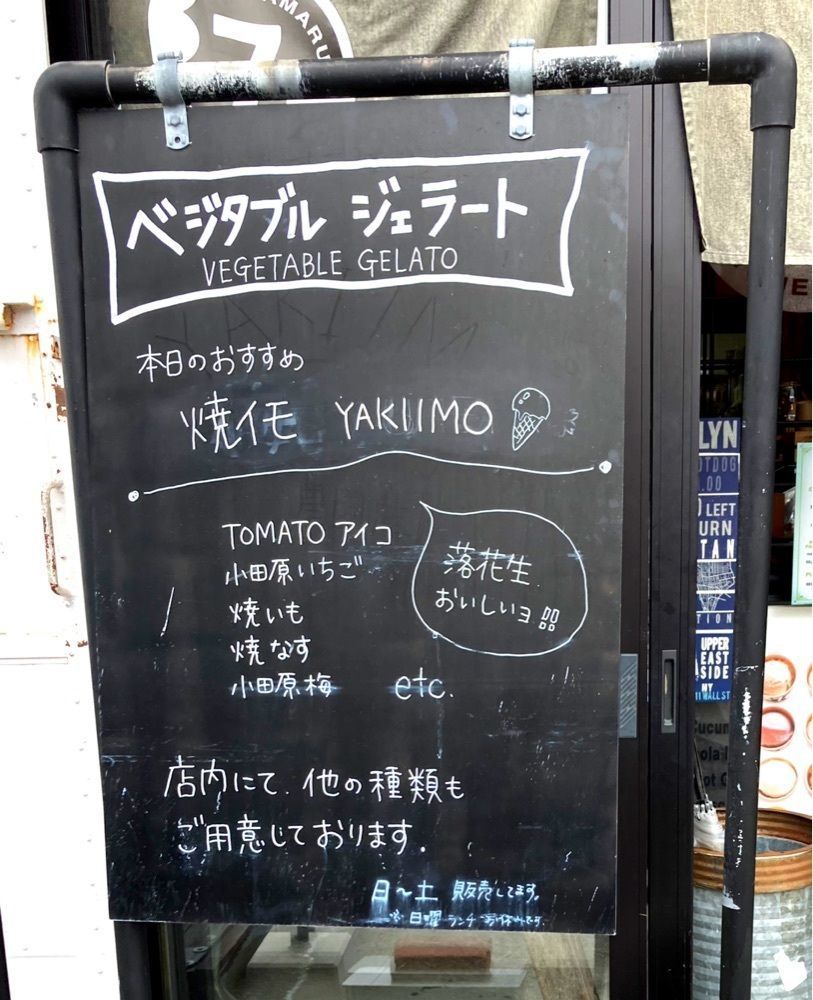 AMARU
37
ベジタブル ジェラート
VEGETABLE GELATO
本日のおすすめ
焼イモ YAKIIMO
TOMATO アイコ
小田原いちご
焼いも
焼なす
小田原梅 etc.
落花生
おいしいヨ!!
店内にて、他の種類も
ご用意しております。
日〜土 販売してます。
※日曜ランチお休みです。
LYN
OTDOG
.00
LEFT
URN
TAN
TION
UPPER
EAST
SIDE
NY
11 WALL ST
Cucum